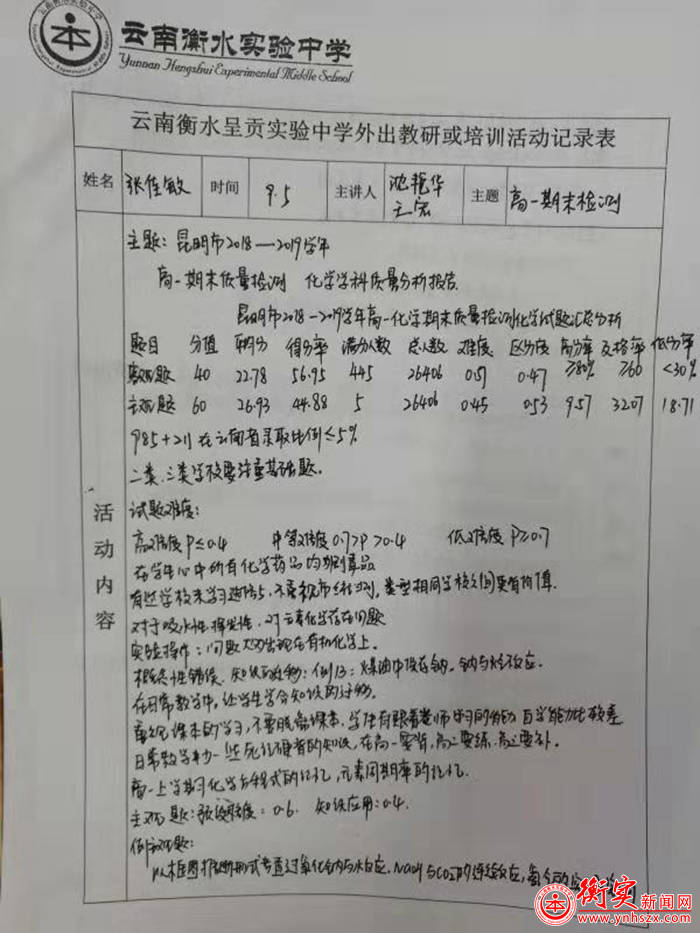 云南衡水实验中学
Yunnan Hengshui Experimental Middle School
云南衡水呈贡实验中学外出教研或培训活动记录表
姓名 张佳敏 时间 9.5 主讲人 池艳华 王宏 主题 高一期末检测
活动内容
主题：昆明市2018—2019学年
高一期末质量检测 化学学科质量分析报告
昆明市2018—2019学年高一化学期末质量检测化学试题汇总分析
题目 分值 平均分 得分率 满分人数 总人数 难度 区分度 高分率 及格率 低分率
客观题 40 22.78 56.95 445 26406 0.57 0.47 ≥80% ≥60 <30%
主观题 60 26.93 44.88 5 26406 0.45 0.53 9.57 32.07 18.71
985+211在云南省录取比例≤5%
二类、三类学校要注重基础题。
试题难度：
高难度 P≤0.4 中等难度 0.7>P>0.4 低难度 P≥0.7
在学生心中所有化学药品均剧毒品
有些学校未学习进络5，不重视市统测，类型相同学校之间更有价值.
对于吸水性、挥发性，对元素化学存在问题
实验操作：问题大多出现在有机化学上。
概念性错误、知识的迁移：例13：煤油中保存钠。钠与烃不反应.
在日常教学中，让学生学会知识的迁移。
重视课本的学习，不要脱离课本，学生有跟着老师学习的能力 自学能力比较差
日常教学中一些死记硬背的知识，在高一要背，高二要练，高三要补。
高一上学期对化学方程式的记忆，元素周期率的记忆.
主观题：难度：0.6. 知识应用：0.4.
例观题：
以框图推断形式考查过氧化钠与水反应，NaOH与CO2的连续反应，
衡实新闻网
www.ynhszx.com